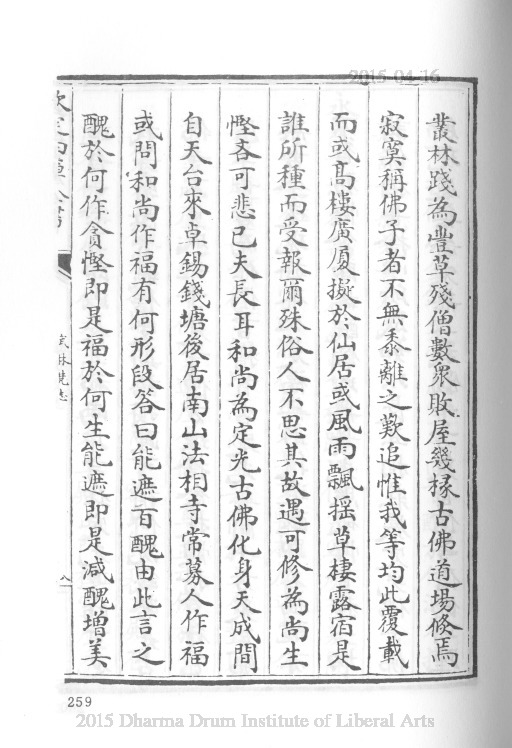 2015-04-16
叢林踐為豐草殘僧數衆敗屋幾椽古佛道場倏焉
寂寞稱佛子者不無黍離之歎追惟我等均此覆載
而或髙樓廣厦擬於仙居或風雨飄揺草棲露宿是
誰所種而受報爾殊俗人不思其故遇可修為尚生
慳吝可悲已夫長耳和尚為定光古佛化身天成間
自天台來卓錫錢塘後居南山法相寺常募人作福
或問和尚作福有何形段答曰能遮百醜由此言之
醜於何作貪慳即是福於何生能遮即是減醜増美
武林梵志
八
259
2015 Dharma Drum Institute of Liberal Arts